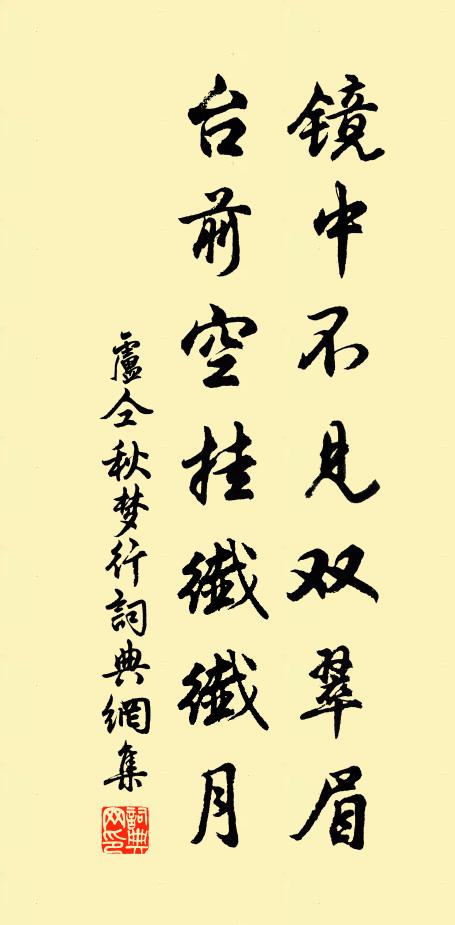 镜中不见双翠眉
台前空挂纖纖月
盧仝秋梦行詞典網集
詞典網印